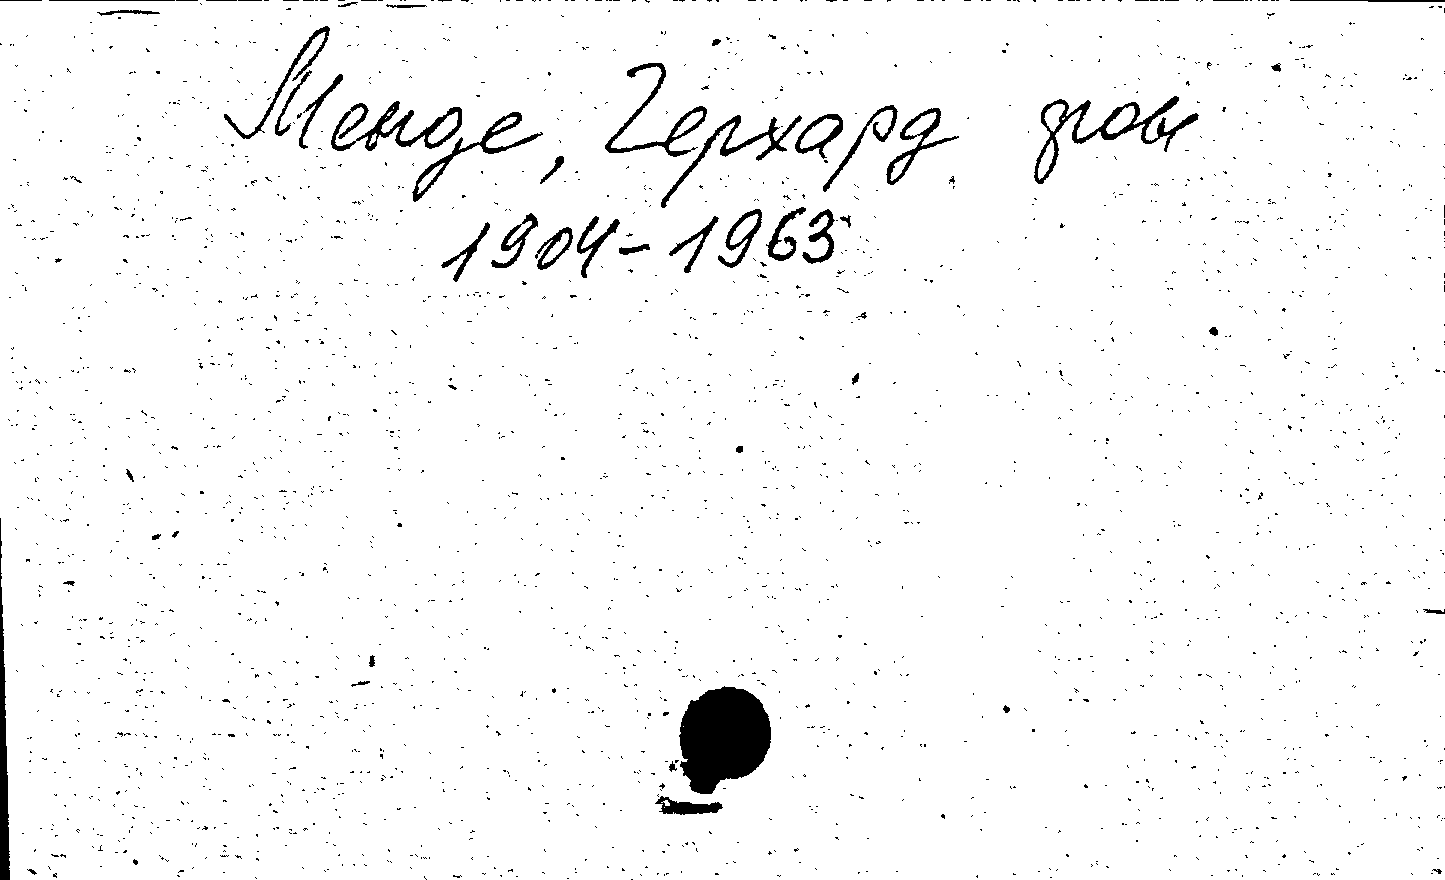 Менде, Герхард фон
1904-1963